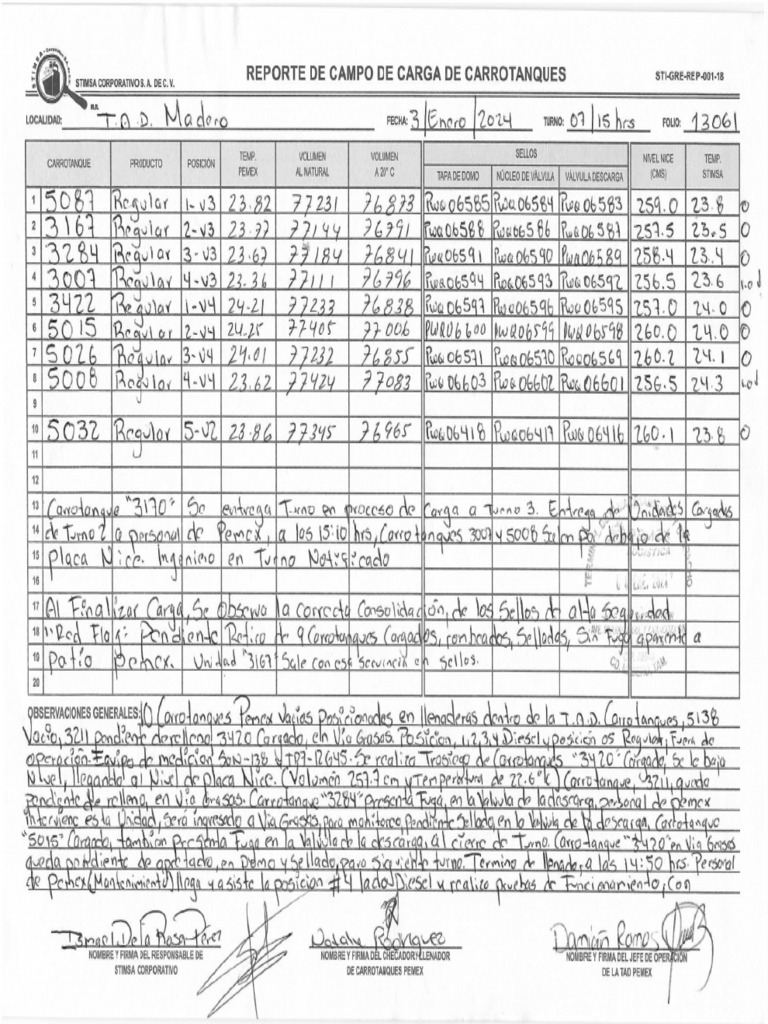 STIMSA
STIMSA CORPORATIVO S. A. DE C. V.
REPORTE DE CAMPO DE CARGA DE CARROTANQUES
STI-GRE-REP-001-18
LOCALIDAD: T.A.D. Madero FECHA: 3/Enero/2024 TURNO: 07/15hrs FOLIO: 13061
CARROTANQUE PRODUCTO POSICIÓN TEMP. PEMEX VOLUMEN AL NATURAL VOLUMEN A 20° C SELLOS TAPA DE DOMO NÚCLEO DE VÁLVULA VÁLVULA DESCARGA NIVEL NICE (CMS) TEMP. STIMSA
1 5087 Regular 1-V3 23.82 77231 76873 PWQ06585 PWQ06584 PWQ06583 259.0 23.8 0
2 3167 Regular 2-V3 23.77 77144 76791 PWQ06588 PWQ06586 PWQ06587 257.5 23.5 0
3 3284 Regular 3-V3 23.67 77184 76841 PWQ06591 PWQ06590 PWQ06589 258.4 23.4 0
4 3007 Regular 4-V3 23.36 77111 76796 PWQ06594 PWQ06593 PWQ06592 256.5 23.6
5 3422 Regular 1-V4 24.21 77233 76838 PWQ06597 PWQ06596 PWQ06595 257.0 24.0 0
6 5015 Regular 2-V4 24.25 77405 77006 PWQ06600 PWQ06599 PWQ06598 260.0 24.0 0
7 5026 Regular 3-V4 24.01 77232 76855 PWQ06571 PWQ06570 PWQ06569 260.2 24.1 0
8 5008 Regular 4-V4 23.62 77424 77083 PWQ06603 PWQ06602 PWQ06601 256.5 24.3
9
10 5032 Regular 5-V2 23.86 77345 76965 PWQ06418 PWQ06417 PWQ06416 260.1 23.8 0
11
12
13 Carrotanque "3170" Se entrega Turno en proceso de Carga a Turno 3. Entrega de Unidades Cargadas
14 de Turno 2 a personal de Pemex, a las 15:10 hrs, Carrotanques 3007 y 5008 Salen por debajo de la
15 Placa Nice. Ingeniero en Turno Notificado
16
17 Al Finalizar Carga, Se Observo la correcta Consolidación, de los Sellos de alta Seguridad
18 "Red Flag" Pendiente Retiro de 9 Carrotanques Cargados, conteados, Sellados, Sin Fuga aparente a
19 patio pemex. Unidad "3167" Sale con esa secuencia en sellos.
20
OBSERVACIONES GENERALES: 10 Carrotanques Pemex Vacios Posicionados en llenaderas dentro de la T.A.D. Carrotanques, 5138
Vacio, 3211 pendiente de relleno, 3420 Cargado, en Via Grasas. Posicion, 1,2,3,4 Diesel y posición 05 Regular, Fuera de
operación. Equipo de medicion SON-138 y TP7-12645. Se realiza Trasiego de Carrotanques "3420" Cargado, Se le bajo
Nivel, llegando al Nivel de Placa Nice. (Volumen 257.7 cm y Temperatura de 22.6°c) Carrotanque, 3211, queda
pendiente de relleno, en Via Grasas. Carrotanque "3284" Presenta Fuga, en la Valvula de la descarga, personal de pemex
Interviene esta Unidad, Será ingresado a Via Grasas, para monitoreo, Pendiente Sellado, en la Valvula de la descarga, Carrotanque
"5015" Cargado, tambien Presenta Fuga en la Valvula de la descarga, al cierre de Turno. Carrotanque "3420" en Via Grasas
queda pendiente de apretado, en Domo y Sellado, para Siguiente turno. Termino de llenado, a las 14:50 hrs. Personal
de Pemex (Mantenimiento) llega y asiste la posicion #4 lado Diesel y realiza pruebas de Funcionamiento, Con
Ismael De la Rosa Perez
NOMBRE Y FIRMA DEL RESPONSABLE DE STIMSA CORPORATIVO
Natalie Rodriguez
NOMBRE Y FIRMA DEL CHECADOR/LLENADOR DE CARROTANQUES PEMEX
Damián Ramos
NOMBRE Y FIRMA DEL JEFE DE OPERACIÓN DE LA TAD PEMEX